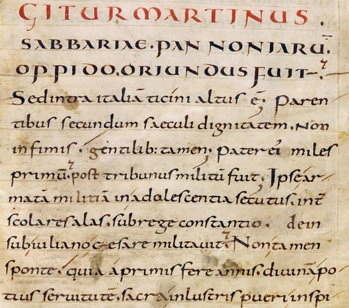 GITUR MARTINUS.
SABBARIAE. PANNONIARŪ.
OPPIDO, ORIUNDUS FUIT.
Sed intra italiā ticini altus ē. Paren
tibus secundum saeculi dignitatem. Non
infimis. gentilib: tamen. Pater ei miles
primū. post tribunus militū fuit. Ipse ar
matā militiā in adolescentia secutus, int
scolares alas, sub rege constantio. dein
sub iuliano cęsare militavit. Non tamen
sponte. quia a primis fere annis, divinā po
tius servitutē. sacra inlustris pueri inspi